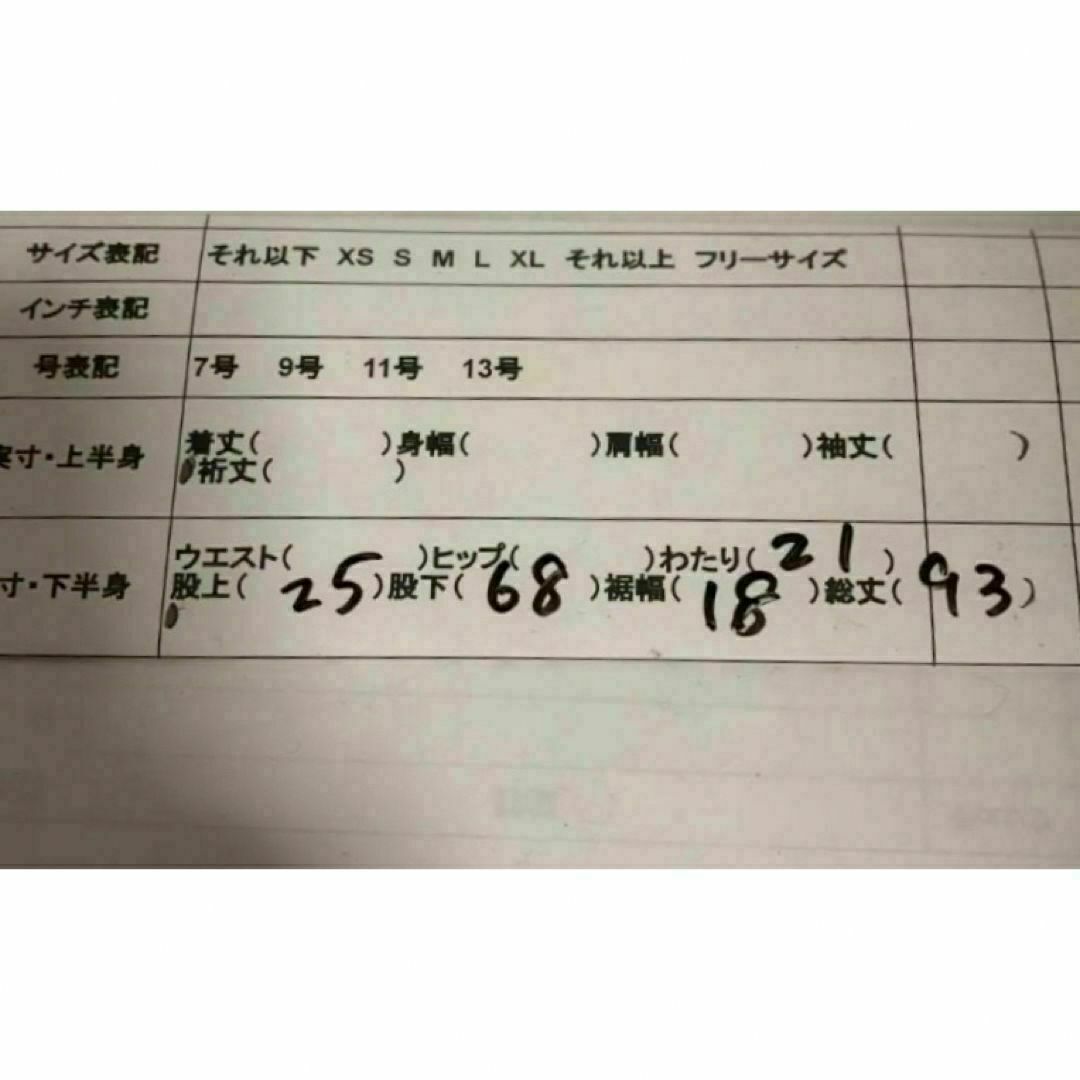 サイズ表記 それ以下 XS S M L XL それ以上 フリーサイズ
インチ表記
号表記 7号 9号 11号 13号
着丈( )身幅( )肩幅( )袖丈( )
実寸・上半身
裄丈( )
ウエスト( )ヒップ( )わたり( 21 )
寸・下半身 股上( 25 )股下( 68 )裾幅( 18 )総丈( 93 )